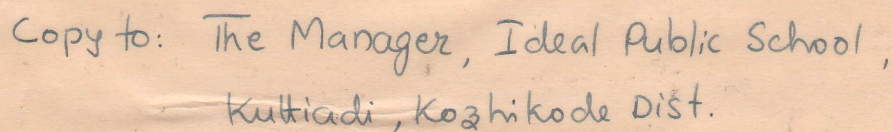 Copy to: The Manager, Ideal Public School,
Kuttiadi, Kozhikode Dist.